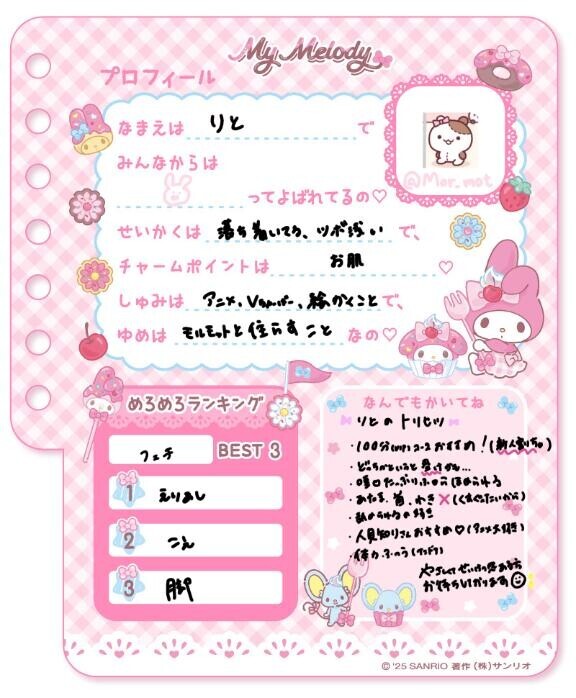 My Melody
プロフィール
なまえは りと で
みんなからは
ってよばれてるの♡
@Mor_mot
せいかくは 落ち着いてる、ツボ浅い で、
チャームポイントは お肌 ♡
しゅみは アニメ、Vtuber、絵かくこと で、
ゆめは モルモットと住らすこと なの♡
めろめろランキング
フェチ BEST 3
1 えりあし
2 こえ
3 脚
なんでもかいてね
りとのトリセツ
・100分 コースおすすめ!(新人割りちゅ)
・どちらかというと
・たっぷり
・あたま、首、わき×(くすぐったいから)
・好き
・人見知りさんおすすめ♡(アニメ大好き)
・体力ふつう
やさしくてせいけつ感ある方
お待ちしております
© '25 SANRIO 著作(株)サンリオ